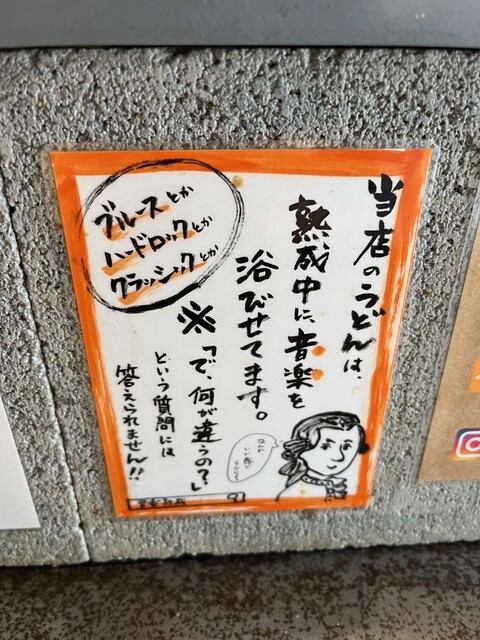 当店のうどんは、
熟成中に、音楽を
浴びせてます。
ブルースとか
ハードロックとか
クラッシックとか
※「で、何が違うの?」
という質問には
答えられません!!